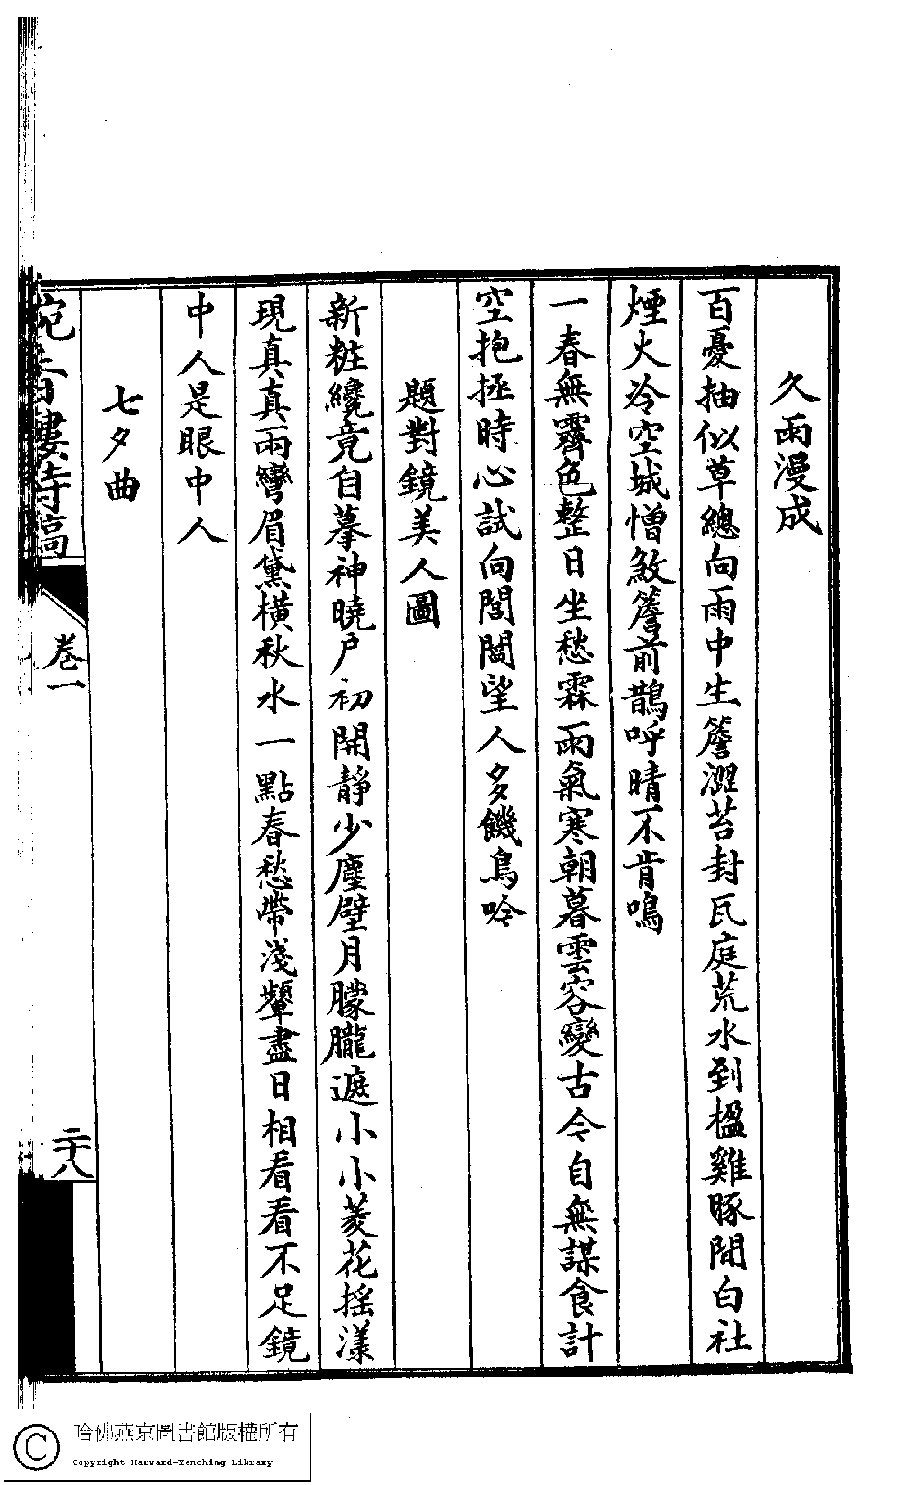 久雨漫成
百憂抽似草總向雨中生簷澀苔封瓦庭荒水到楹雞豚閒白社
煙火冷空城憎煞簷前鵲呼晴不肯鳴
一春無霽色整日坐愁霖雨氣寒朝暮雲容變古今自無謀食計
空抱拯時心試向閭閻望人多饑鳥吟
題對鏡美人圖
新粧纔竟自摹神曉戶初開靜少塵壁月朦朧遮小小菱花搖漾
現真真兩彎眉黛橫秋水一點春愁帶淺顰盡日相看看不足鏡
中人是眼中人
七夕曲
樓詩稿
卷一
二十八
哈佛燕京圖書館版權所有
Copyright Harvard-Yenching Library